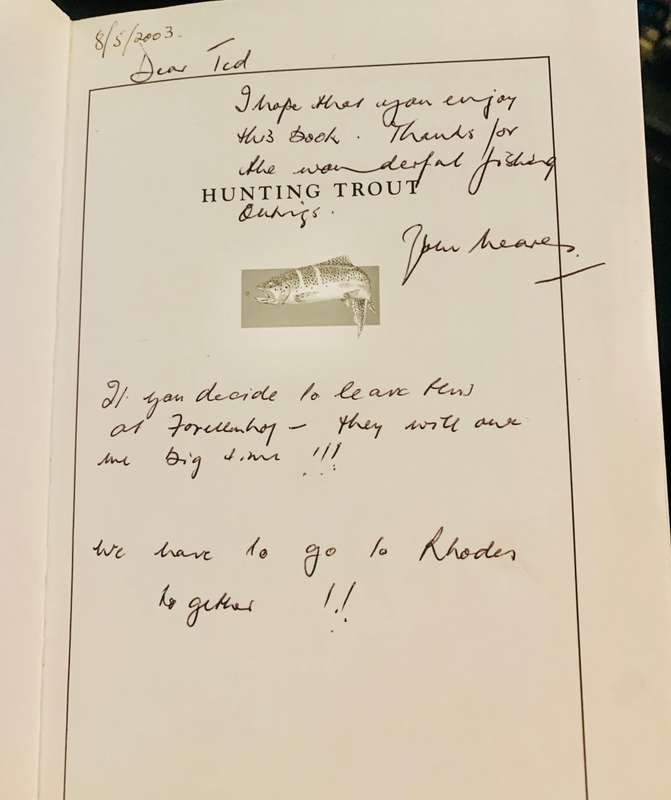 8/5/2003.
Dear Ted
I hope that you enjoy
this book. Thanks for
the wonderful fishing
HUNTING TROUT
Outings.
If you decide to leave this
at Forellenhof – they will owe
me big time !!!
We have to go to Rhodes
together !!